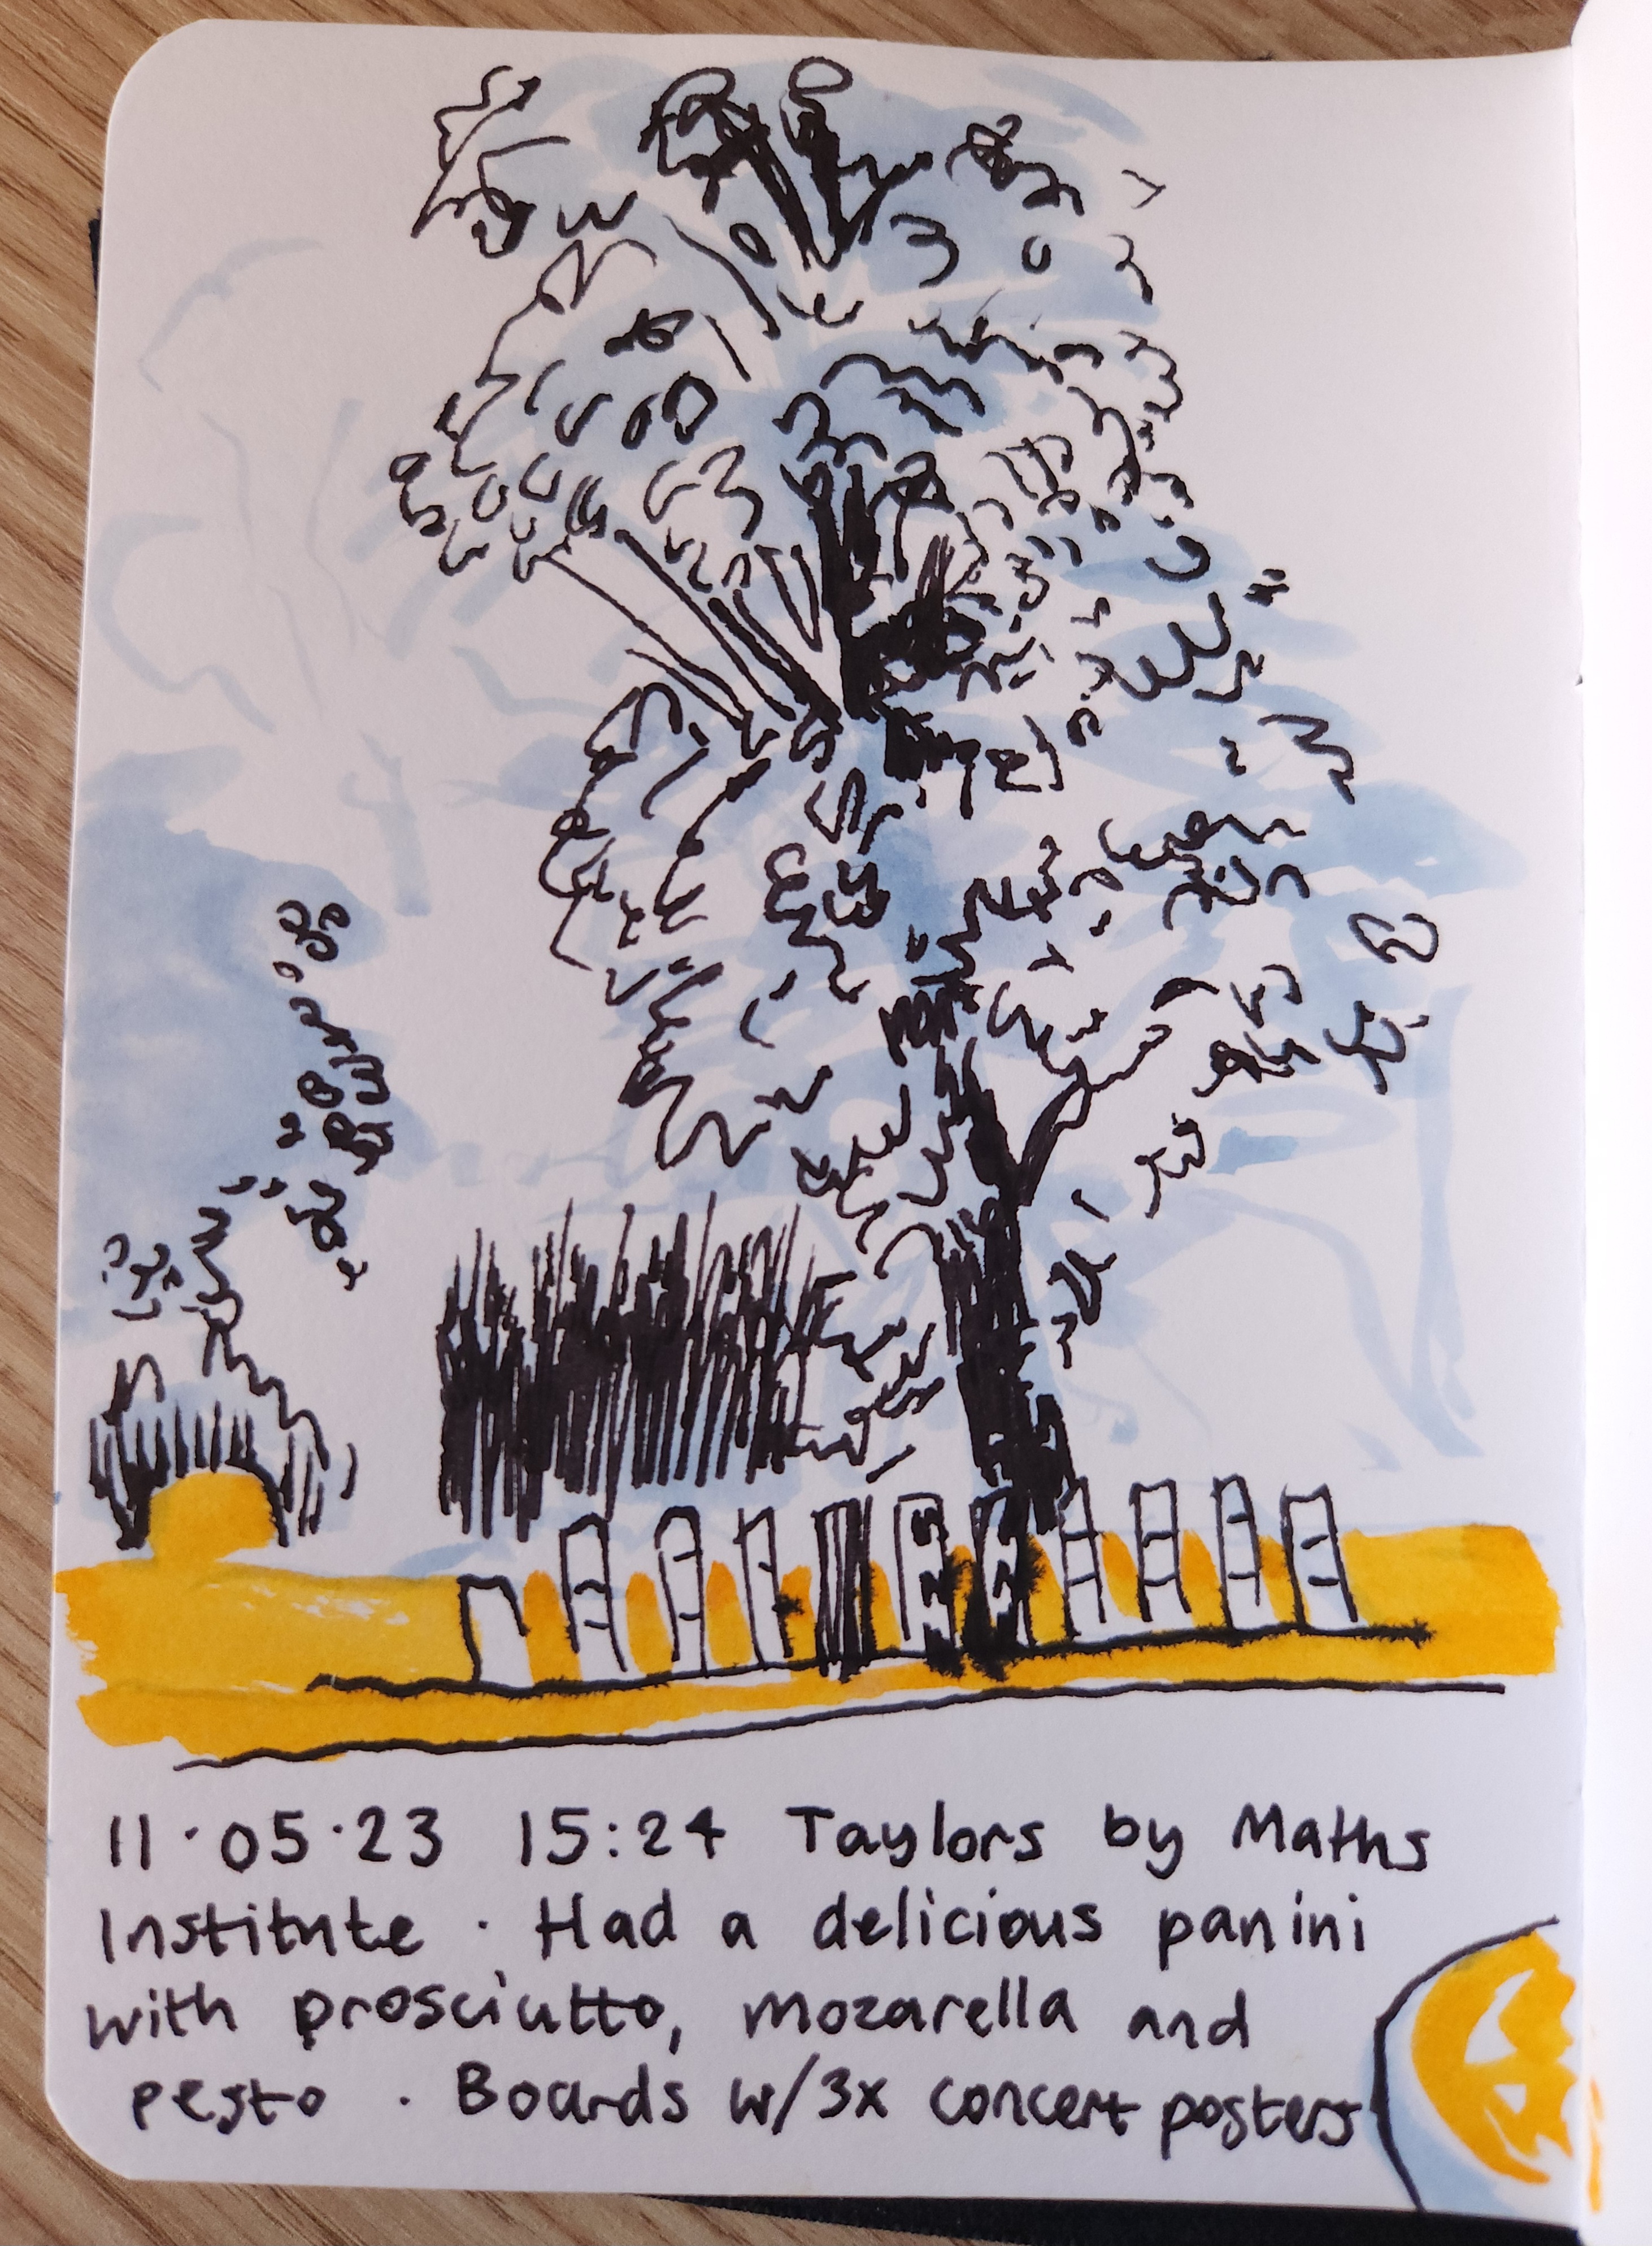 11·05·23 15:24 Taylors by Maths
Institute · Had a delicious panini
with prosciutto, mozarella and
pesto · Boards w/3x concert posters